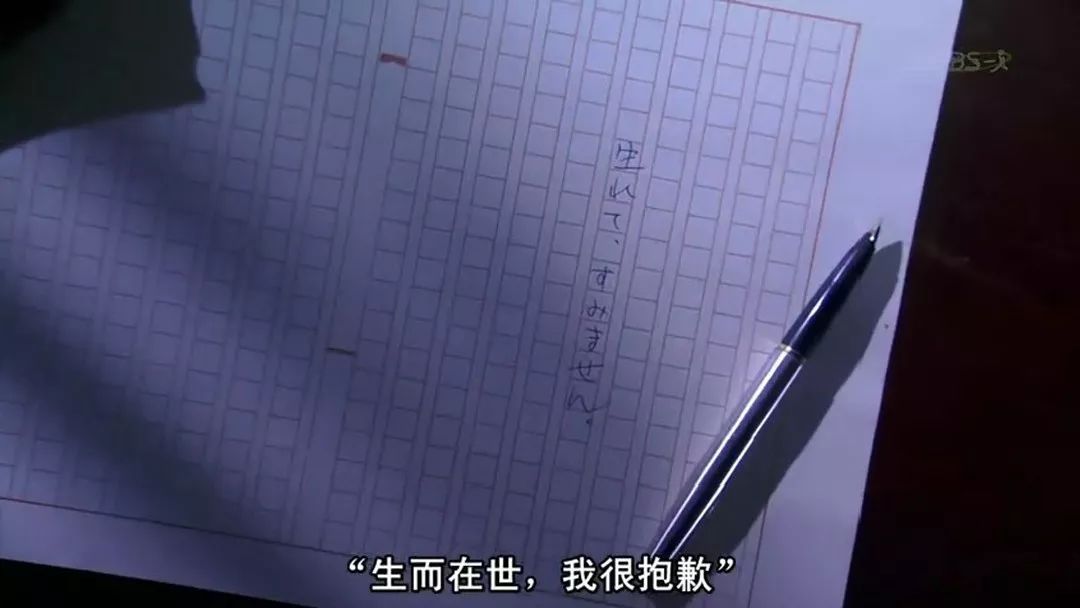 BS-i
生れて、すみません。
“生而在世，我很抱歉”